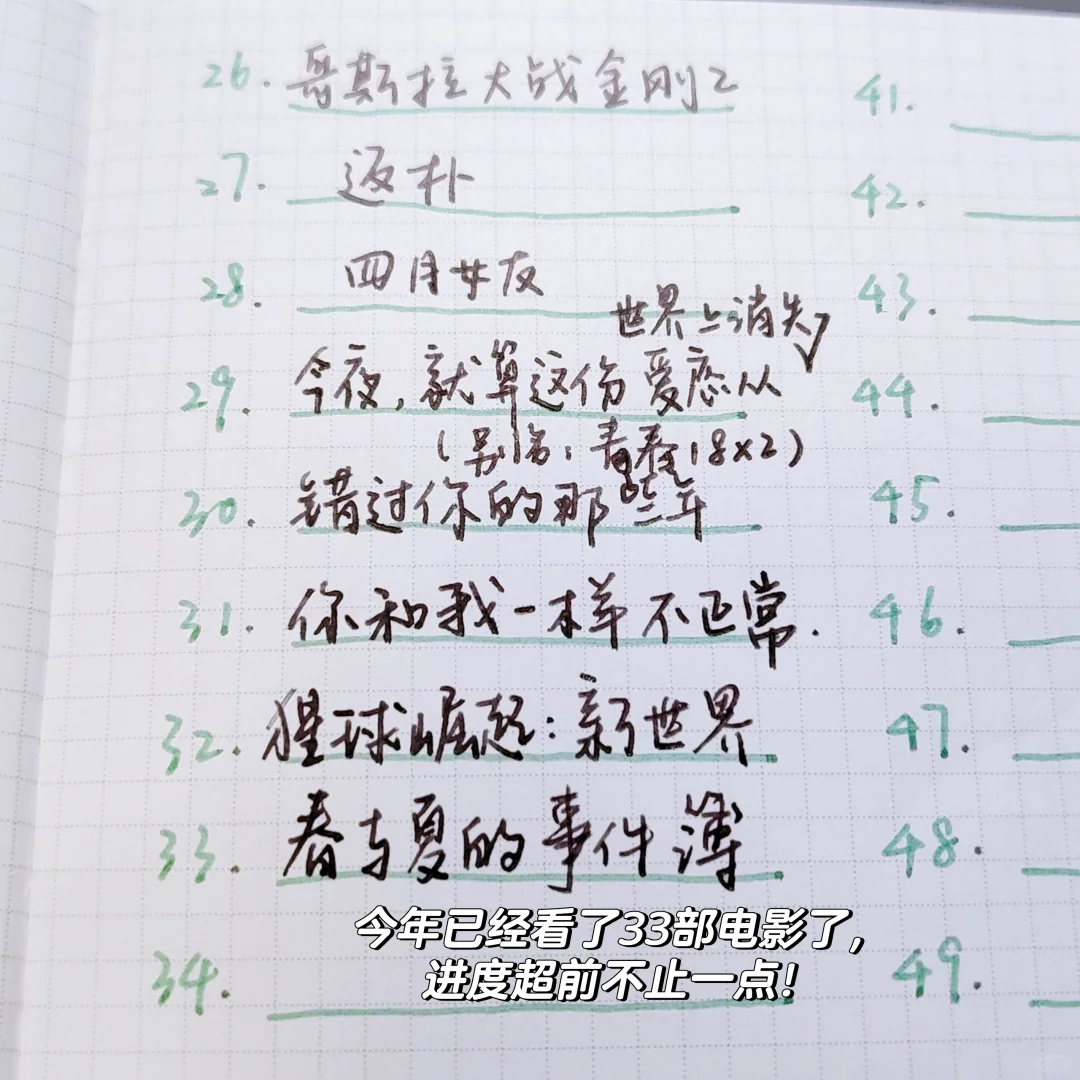 26. 哥斯拉大战金刚2
27. 返朴
28. 四月女友
世界上消失
29. 今夜,就算这份爱恋从
(别名:青春18×2)
30. 错过你的那些年
31. 你和我一样不正常.
32. 猩球崛起:新世界
33. 春与夏的事件簿
34.
41.
42.
43.
44.
45.
46.
47.
48.
49.
今年已经看了33部电影了,
进度超前不止一点!